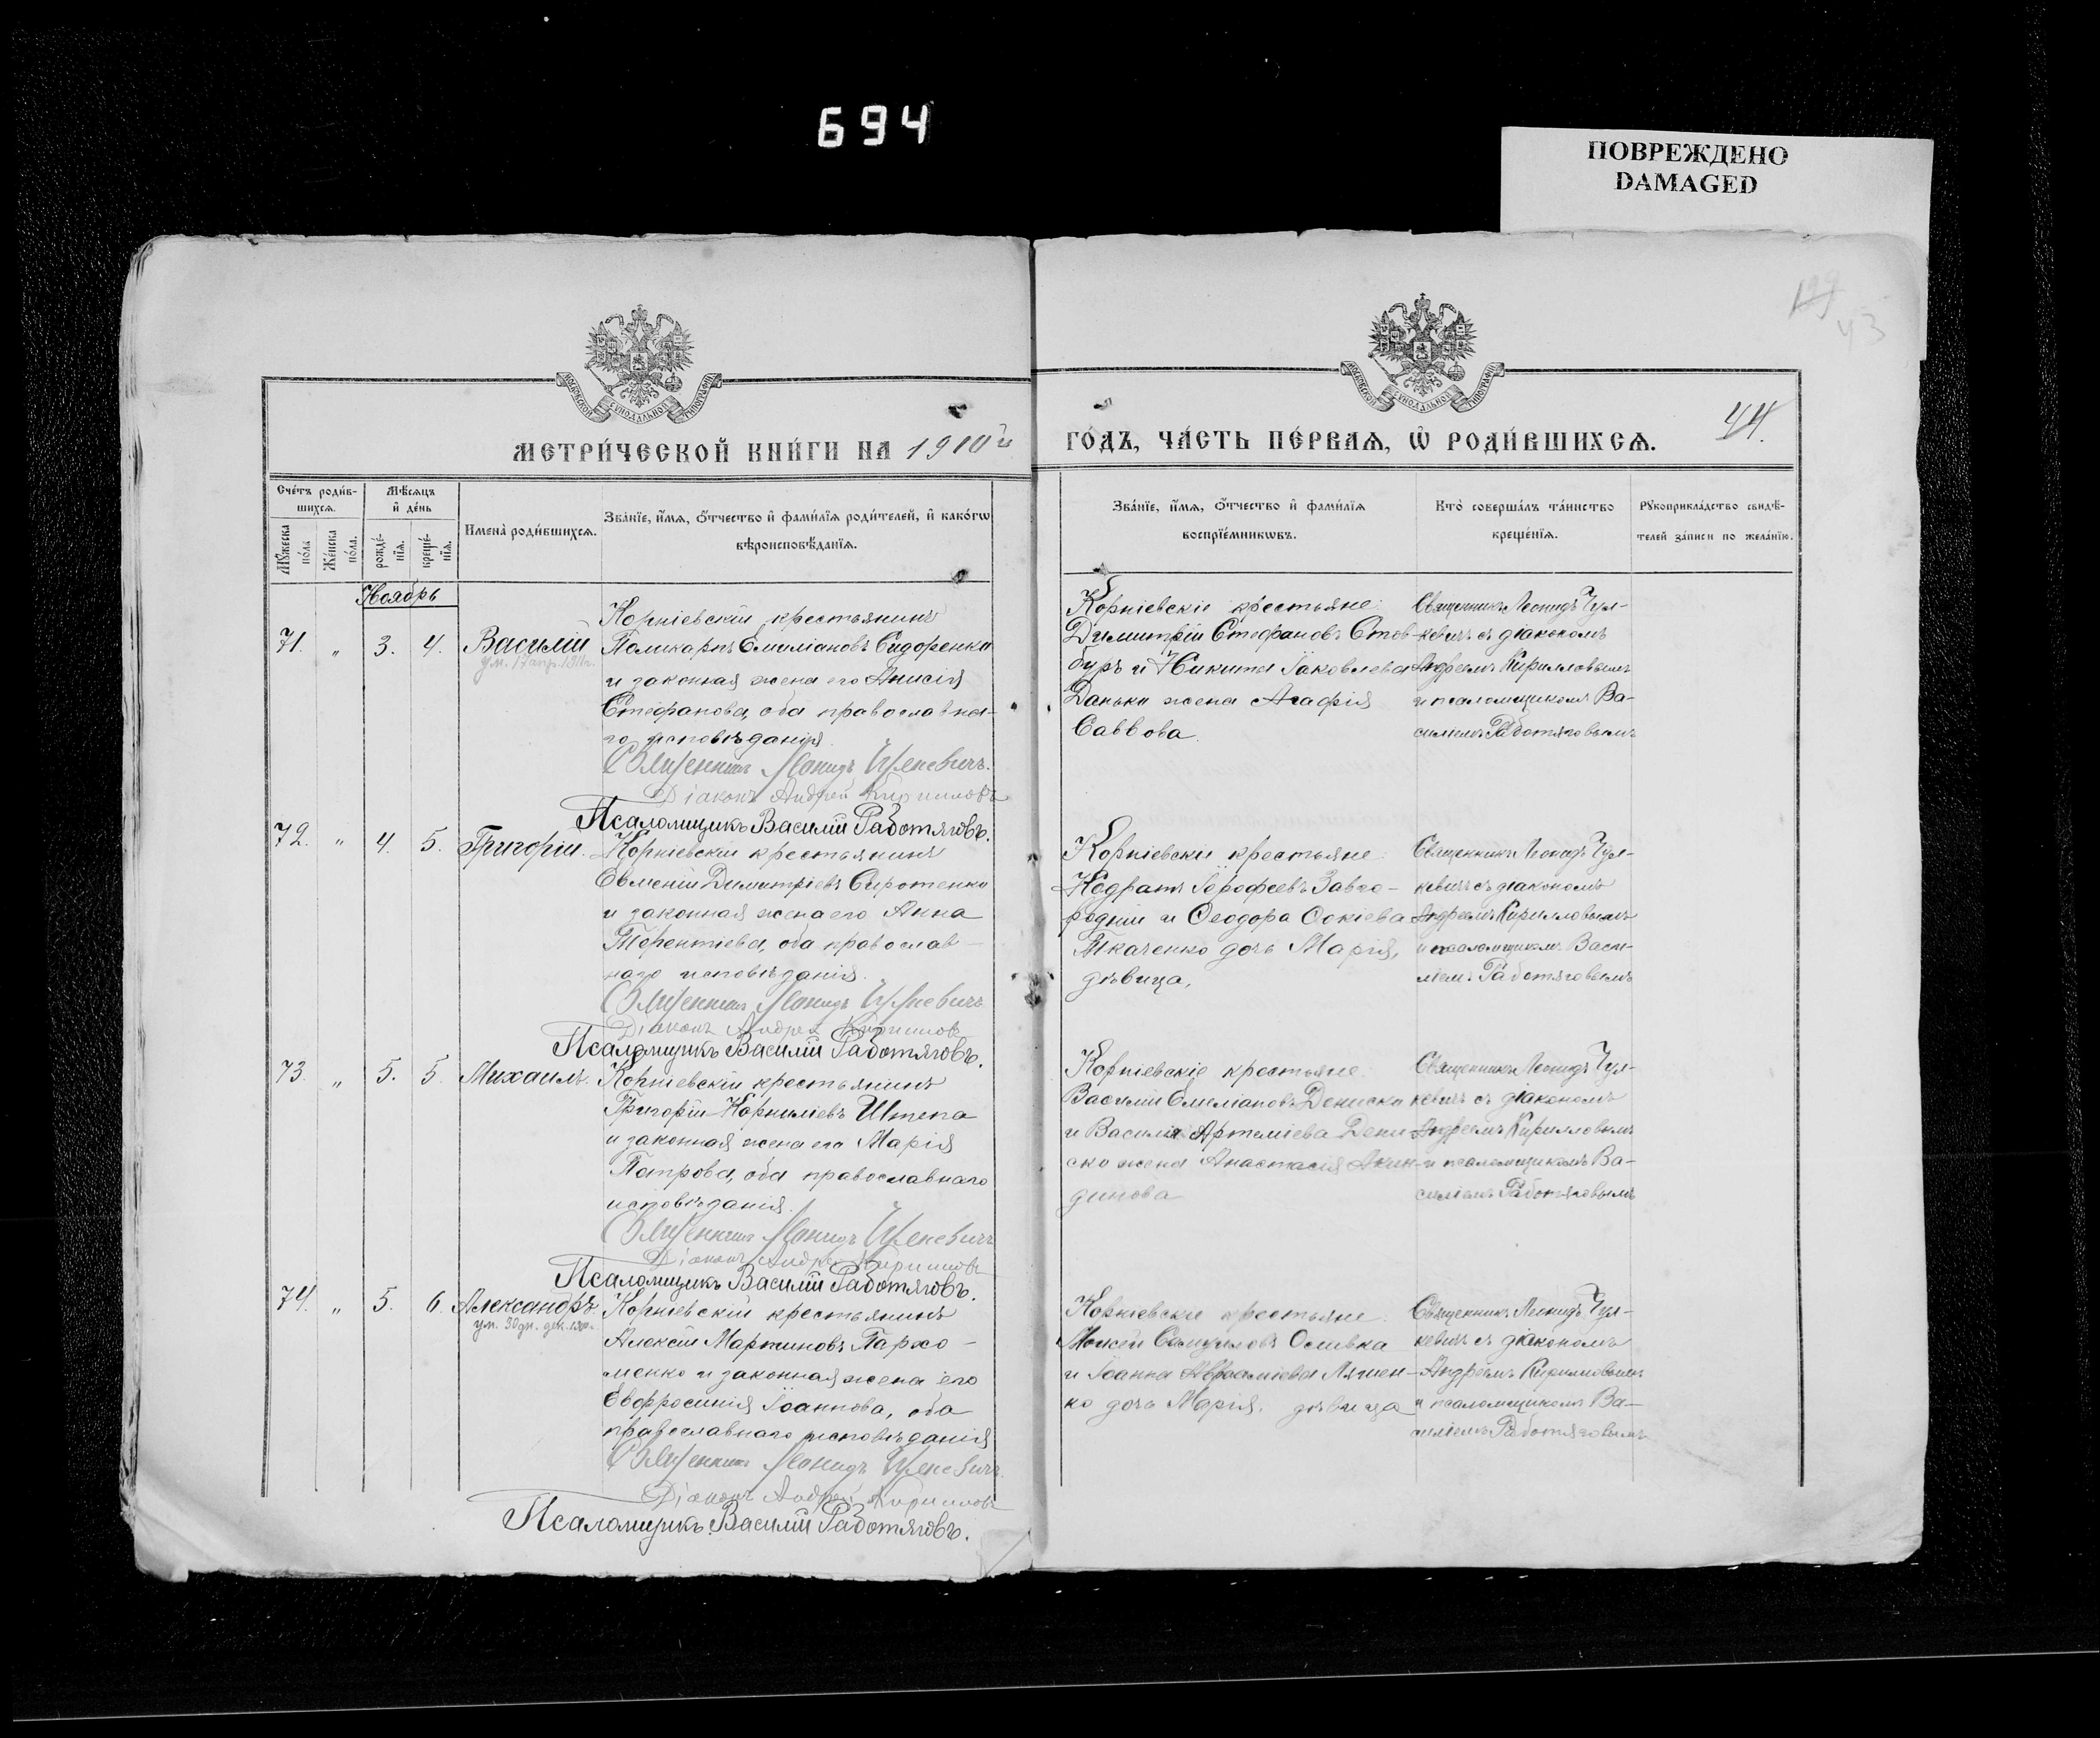 694
ПОВРЕЖДЕНО
DAMAGED
43
МОСКОВСКОЙ СѴНОДАЛЬНОЙ ТИПОГРАФІИ
МОСКОВСКОЙ СѴНОДАЛЬНОЙ ТИПОГРАФІИ
МЕТРИ́ЧЕСКОЙ КНИ́ГИ НА 1910й
ГО́ДЪ, ЧА́СТЬ ПЕ́РВАѦ, Ѡ҆ РОДИ́ВШИХСѦ.
44.
Сче́тъ роди́в-
шихсѧ.
Мѣ́сѧцъ
и҆ де́нь
Мꙋ́жеска
по́ла
Же́нска
по́ла.
рожде́-
нїѧ.
креще́-
нїѧ.
И҆мена̀ роди́вшихсѧ.
Зва́нїе, и҆́мѧ, ѻ҆́тчество и҆ фами́лїѧ роди́телей, и҆ како́гѡ
вѣроисповѣ́данїѧ.
Зва́нїе, и҆́мѧ, ѻ҆́тчество и҆ фами́лїѧ
воспрїе́мникѡвъ.
Кто̀ соверша́лъ та́инство
креще́нїѧ.
Рꙋкоприкла́дство свидѣ́-
телей за́писи по жела́нїю.
Ноябрь
71. " 3. 4. Василій
ум. 17 апр. 1911г.
Корніевскій крестьянинъ
Поликарпъ Емиліановъ Сидоренко
и законная жена его Анисія
Стефанова, оба православна-
го исповѣданія.
Священникъ Леонидъ Чулкевичъ.
Діаконъ Андрей Кирилловъ
Псаломщикъ Василій Работяговъ.
Корніевскіе крестьяне:
Димитрій Стефановъ Стов-
буръ и Никиты Іаковлева
Данька жена Агафія
Саввова.
Священникъ Леонидъ Чул-
кевичъ съ діакономъ
Андреемъ Кирилловымъ
и псаломщикомъ Ва-
силіемъ Работяговымъ
72. " 4. 5. Григорій.
Корніевскій крестьянинъ
Евменій Димитріевъ Сиротенко
и законная жена его Анна
Терентіева, оба православ-
наго исповѣданія.
Священникъ Леонидъ Чулкевичъ
Діаконъ Андрей Кирилловъ
Псаломщикъ Василій Работяговъ.
Корніевскіе крестьяне:
Кодратъ Іерофеевъ Заво-
родній и Ѳеодора
Ткаченко дочь Марія,
дѣвица,
Священникъ Леонидъ Чул-
кевичъ съ діакономъ
Андреемъ Кирилловымъ
и псаломщикомъ Васи-
ліемъ Работяговымъ
73. " 5. 5. Михаилъ.
Корніевскій крестьянинъ
Григорій Корниліевъ Штепа
и законная жена его Марія
Петрова, оба православнаго
исповѣданія.
Священникъ Леонидъ Чулкевичъ
Діаконъ Андрей Кирилловъ
Псаломщикъ Василій Работяговъ.
Корніевскіе крестьяне:
Василій Емеліановъ Дениско
и Василія Артеміева Дени-
ско жена Анастасія Акин-
динова
Священникъ Леонидъ Чул-
кевичъ съ діакономъ
Андреемъ Кирилловымъ
и псаломщикомъ Ва-
силіемъ Работяговымъ
74. " 5. 6. Александръ.
ум. 30 дн. дек. 1910г.
Корніевскій крестьянинъ
Алексій Мартиновъ Пархо-
менко и законная жена его
Евфросинія Іоаннова, оба
православнаго исповѣданія
Священникъ Леонидъ Чулкевичъ
Діаконъ Андрей Кирилловъ
Псаломщикъ Василій Работяговъ.
Корніевскіе крестьяне:
Моисей Самуиловъ Осливка
и Іоанна Ляшен-
ко дочь Марія, дѣвица
Священникъ Леонидъ Чул-
кевичъ съ діакономъ
Андреемъ Кирилловымъ
и псаломщикомъ Ва-
силіемъ Работяговымъ